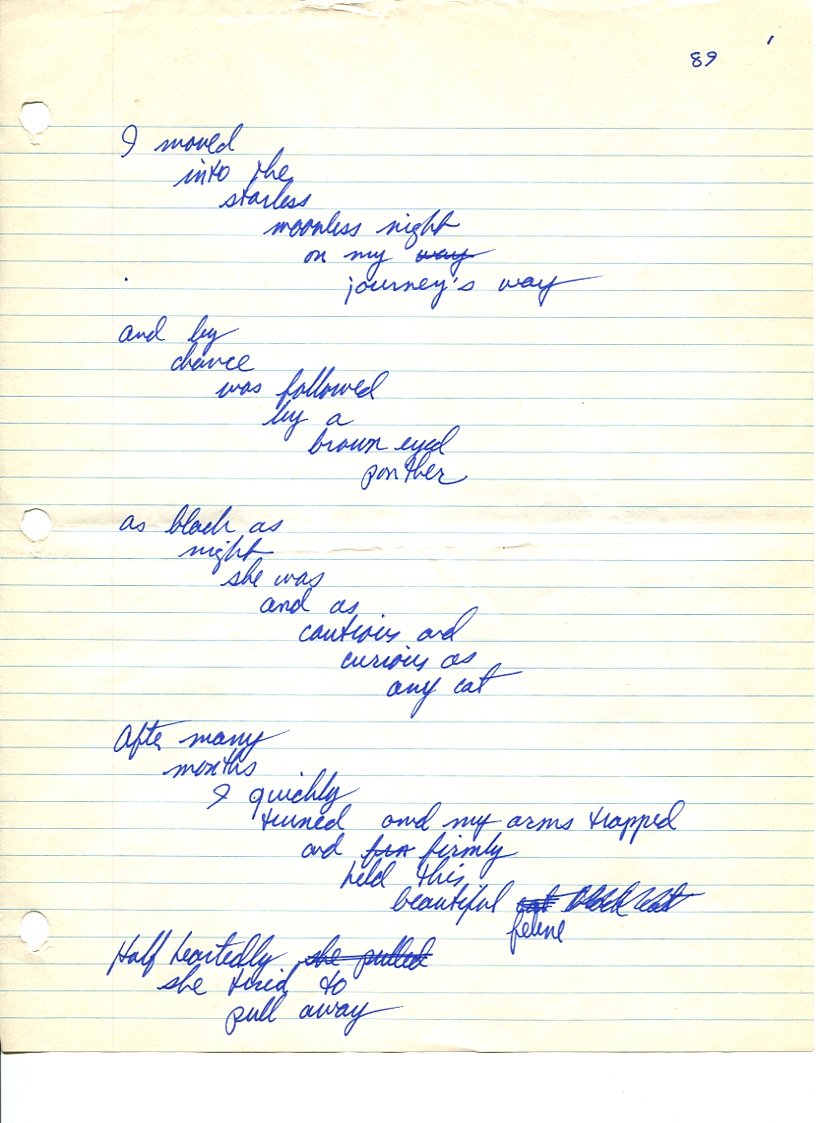 89
I moved
into the
starless
moonless night
on my way
journey's way
and by
chance
was followed
by a
brown eyed
panther
as black as
night
she was
and as
cautious and
curious as
any cat
After many
months
I quickly
turned and my arms trapped
and firmly
held this
beautiful cat black cat
feline
Half heartedly she pulled
she tried to
pull away